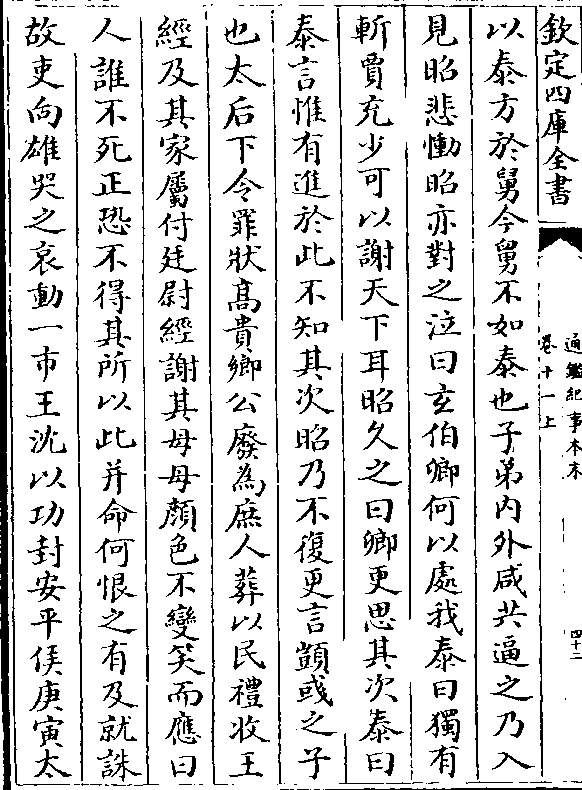 欽定四庫全書
通鑑紀事本末
卷十一上
四十二
以泰方於舅今舅不如泰也子弟内外咸共逼之乃入
見昭悲慟昭亦對之泣曰玄伯卿何以處我泰曰獨有
斬賈充少可以謝天下耳昭久之曰卿更思其次泰曰
泰言惟有進於此不知其次昭乃不復更言顗彧之子
也太后下令罪狀髙貴鄉公廢為庶人葬以民禮收王
經及其家屬付廷尉經謝其母母顔色不變笑而應曰
人誰不死正恐不得其所以此并命何恨之有及就誅
故吏向雄哭之哀動一市王沈以功封安平侯庚寅太